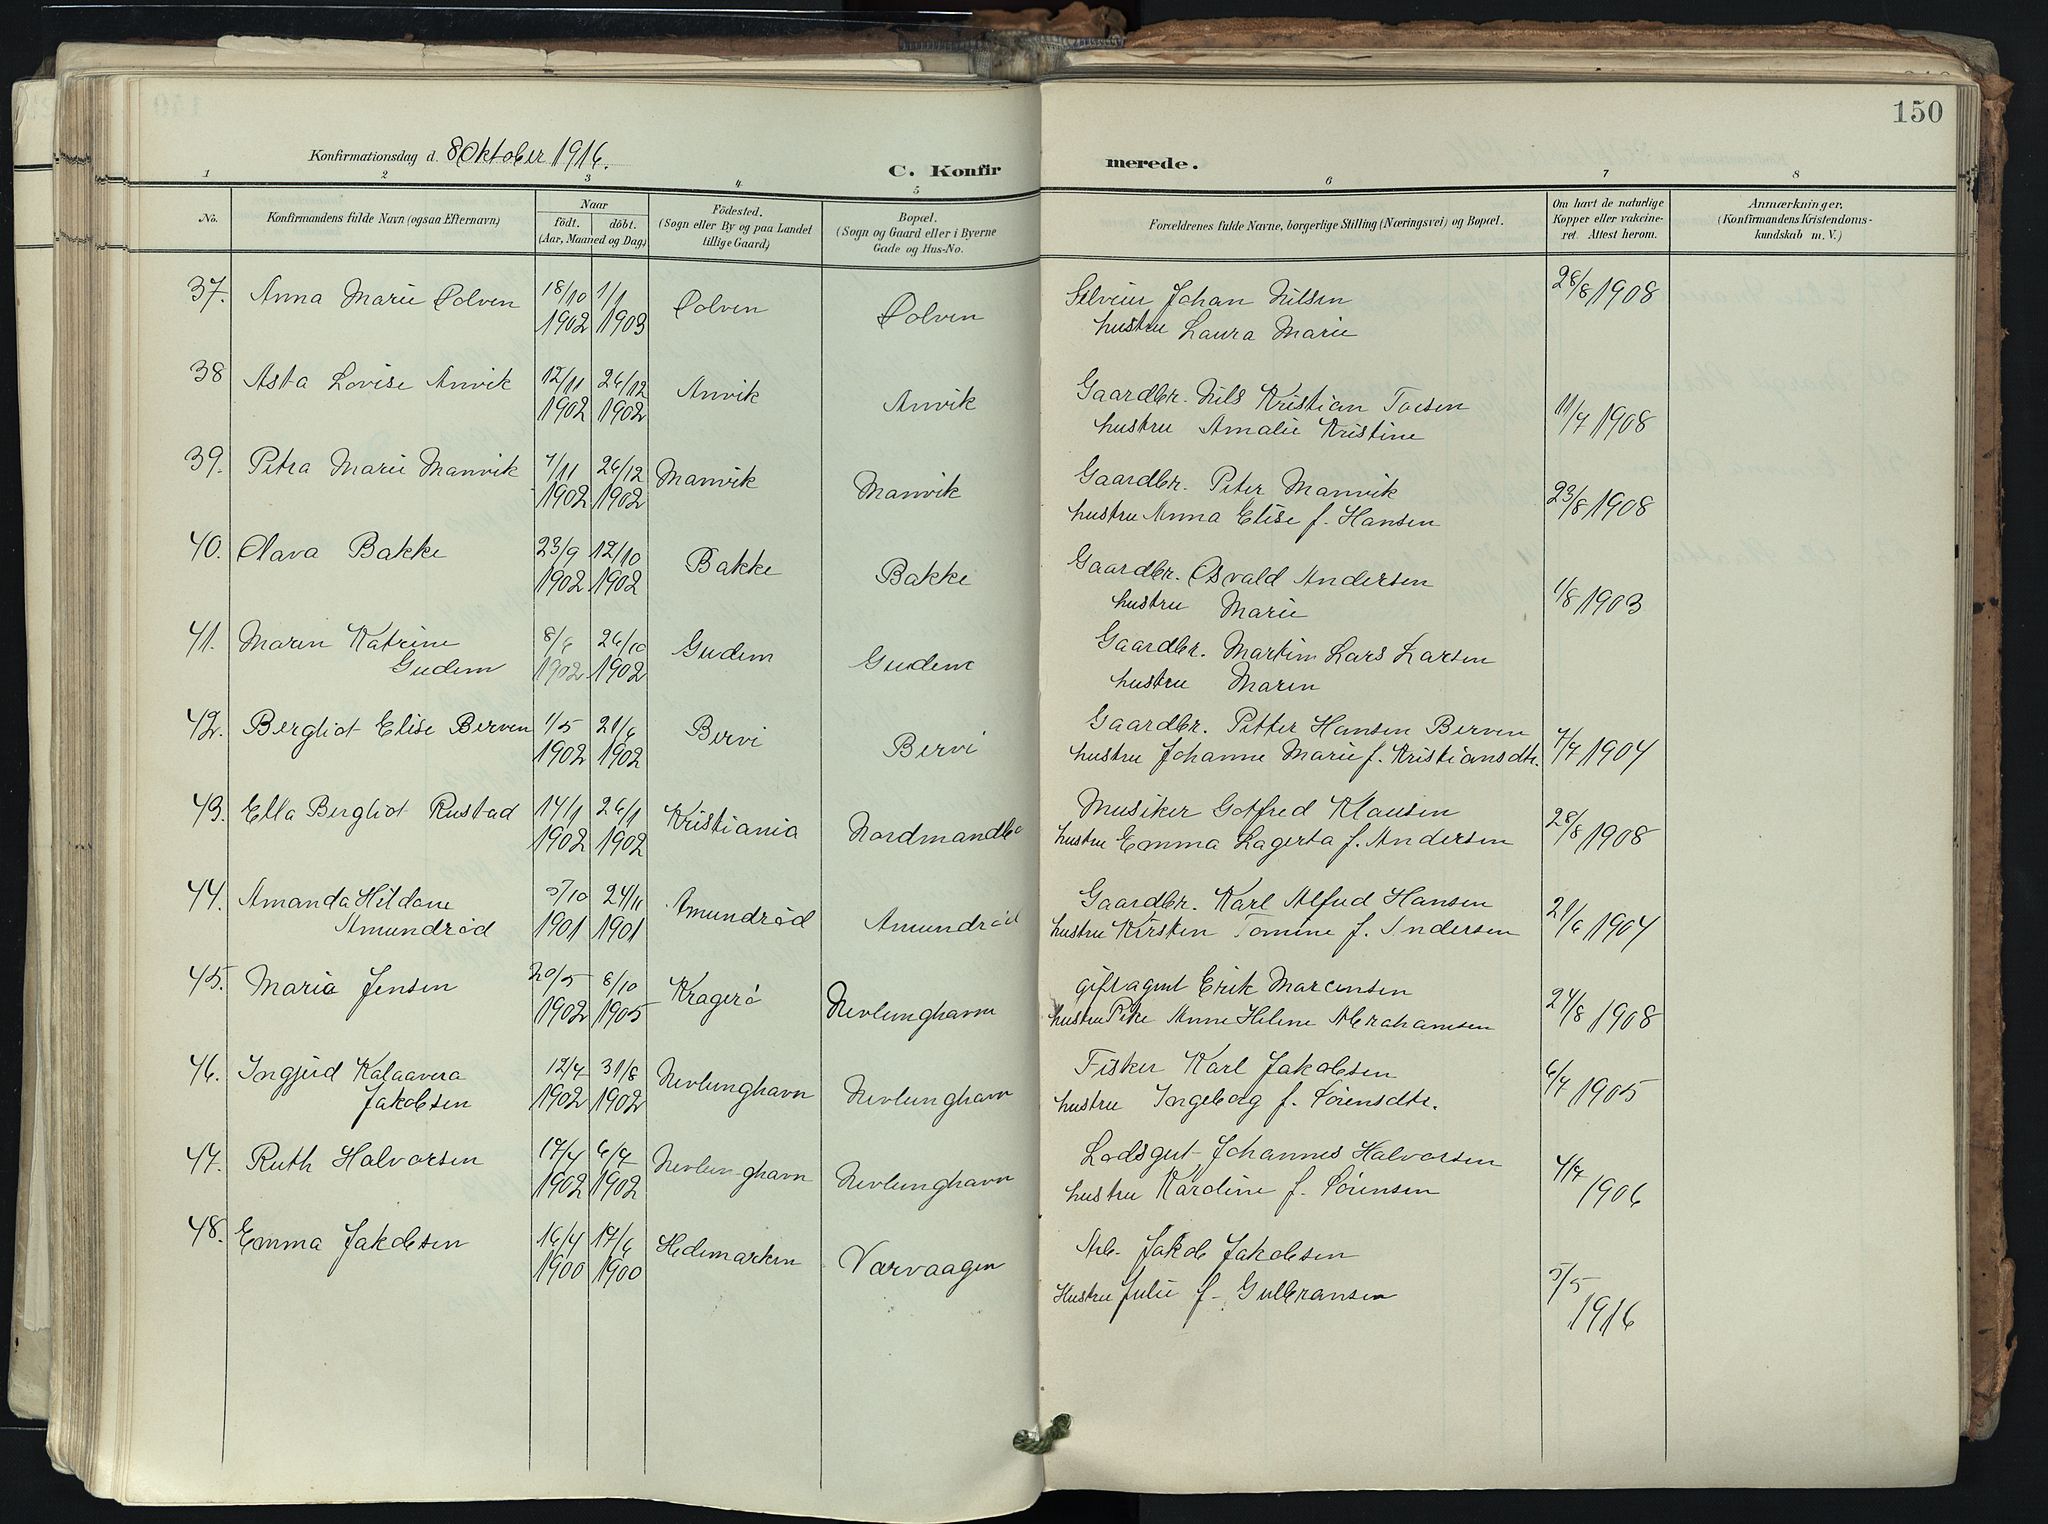 150
Konfirmationsdag d. 8 Oktober 1916.
C. Konfirmerede.
1 2 3 4 5 6 7 8
No.
Konfirmandens fulde Navn (ogsaa Efternavn)
Naar
födt. döbt.
(Aar, Maaned og Dag)
Födested.
(Sogn eller By og paa Landet
tillige Gaard)
Bopæl.
(Sogn og Gaard eller i Byerne
Gade og Hus-No.
Forældrenes fulde Navne, borgerlige Stilling (Næringsvei) og Bopæl.
Om havt de naturlige
Kopper eller vakcine-
ret. Attest herom.
Anmærkninger.
(Konfirmandens Kristendoms-
kundskab m. V.)
37. Anna Marie Oolven 18/10 1902 1/1 1903 Oolven Oolven Selveier Johan Nilsen 28/8 1908
hustru Laura Marie
38 Asta Lovise Anvik 12/11 1902 26/12 1902 Anvik Anvik Gaardbr. Nils Kristian 11/7 1908
hustru Amalie Kristine
39. Petra Marie Manvik 7/11 1902 26/12 1902 Manvik Manvik Gaardbr. Peter Manvik 23/8 1908
hustru Anna Elise f. Hansen
40. Olava Bakke 23/9 1902 12/10 1902 Bakke Bakke Gaardbr. Osvald Andersen 1/8 1903
hustru Marie
41. Maren Katrine
Gudem 8/6 1902 26/10 1902 Gudem Gudem Gaardbr. Martin Lars Larsen
hustru Maren
42. Bergliot Elise Berven 1/5 1902 21/6 1902 Bervi Bervi Gaardbr. Petter Hansen Berven 7/7 1904
hustru Johanne Marie f. Kristiansdtr.
43. Ella Bergliot Rustad 14/1 1902 26/1 1902 Kristiania Nordmandb Musiker Gotfred Klausen 28/8 1908
hustru Emma Lagerta f. Andersen
44. Amanda Hildane
Amundrød 5/10 1901 24/11 1901 Amundrød Amundrød Gaardbr. Karl Alfred Hansen 21/6 1904
hustru Kirsten Tomine f. Andersen
45. Maria Jensen 20/5 1902 8/10 1905 Kragerø Nevlunghavn gift agent Erik Marensen 24/8 1908
hustru Anne Helene Abrahamsen
46. Ingjerd Kalaavera
Jakobsen 12/7 1902 31/8 1902 Nevlunghavn Nevlunghavn Fisker Karl Jakobsen 6/7 1905
hustru Ingeborg f. Sørensdtr.
47. Ruth Halvorsen 17/4 1902 6/7 1902 Nevlunghavn Nevlunghavn Lodsgut Johannes Halvorsen 4/7 1906
hustru Kardine f. Sørensen
48. Emma Jakobsen 16/4 1900 17/6 1900 Hedemarken Varvaagen Arb. Jakob Jakobsen 5/5 1916
Hustru Julie f. Gulbransen